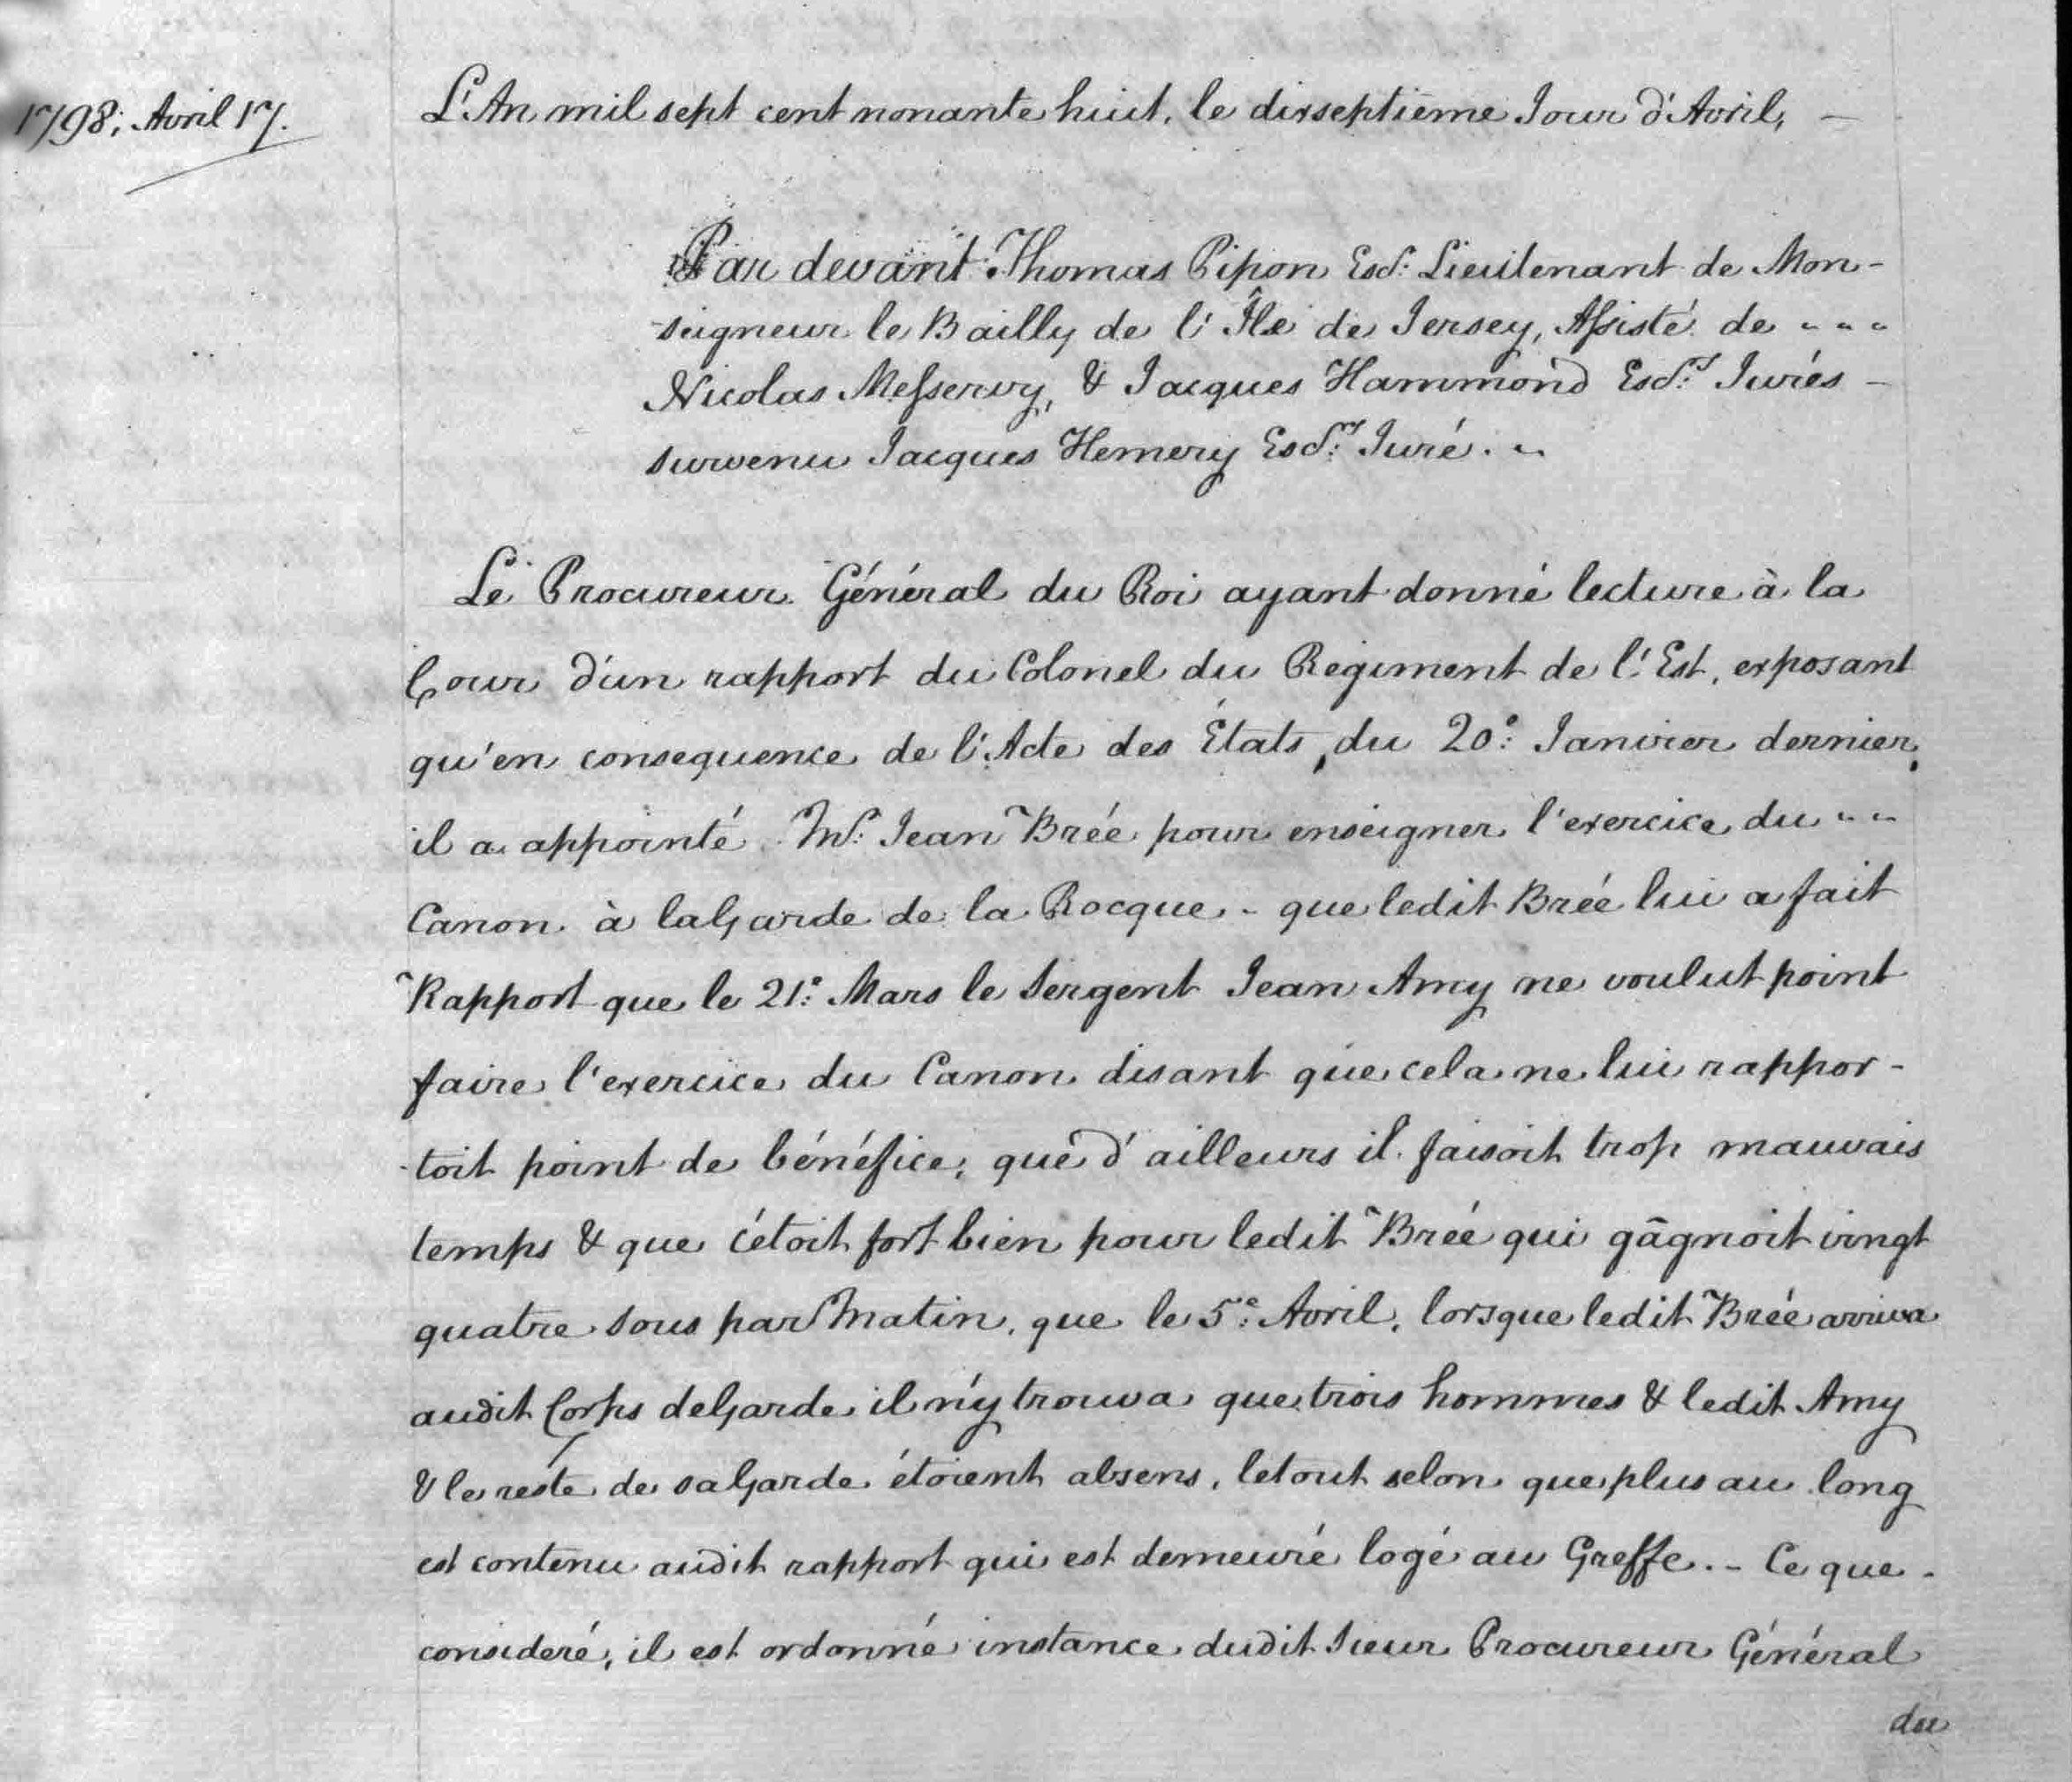 1798; Avril 17.
L'An mil sept cent nonante huit, le disseptième Jour d'Avril, —
Par devant Thomas Pipon Esc.r Lieutenant de Mon-
seigneur le Bailly de l'Île de Jersey, Assisté de
Nicolas Messervy, & Jacques Hammond Esc.rs Jurés -
survenu Jacques Hemery Esc.r Juré.
Le Procureur Général du Roi ayant donné lecture à la
Cour d'un rapport du Colonel du Regiment de l'Est, exposant
qu'en consequence de l'Acte des États, du 20e Janvier dernier,
il a appointé Mr. Jean Brée pour enseigner l'exercice du
Canon à la Garde de la Rocque - que ledit Brée lui a fait
Rapport que le 21e Mars le Sergent Jean Amy ne voulut point
faire l'exercice du Canon disant que cela ne lui rappor-
toit point de bénéfice, que d'ailleurs il faisoit trop mauvais
temps & que c'étoit fort bien pour ledit Brée qui gâgnoit vingt
quatre sous par Matin, que le 5e Avril, lorsque ledit Brée arriva
audit Corps de Garde il n'y trouva que trois hommes & ledit Amy
& le reste de sa Garde étoient absens, le tout selon que plus au long
est contenu audit rapport qui est demeuré logé au Greffe. - Ce que
consideré, il est ordonné instance dudit Sieur Procureur Général
du